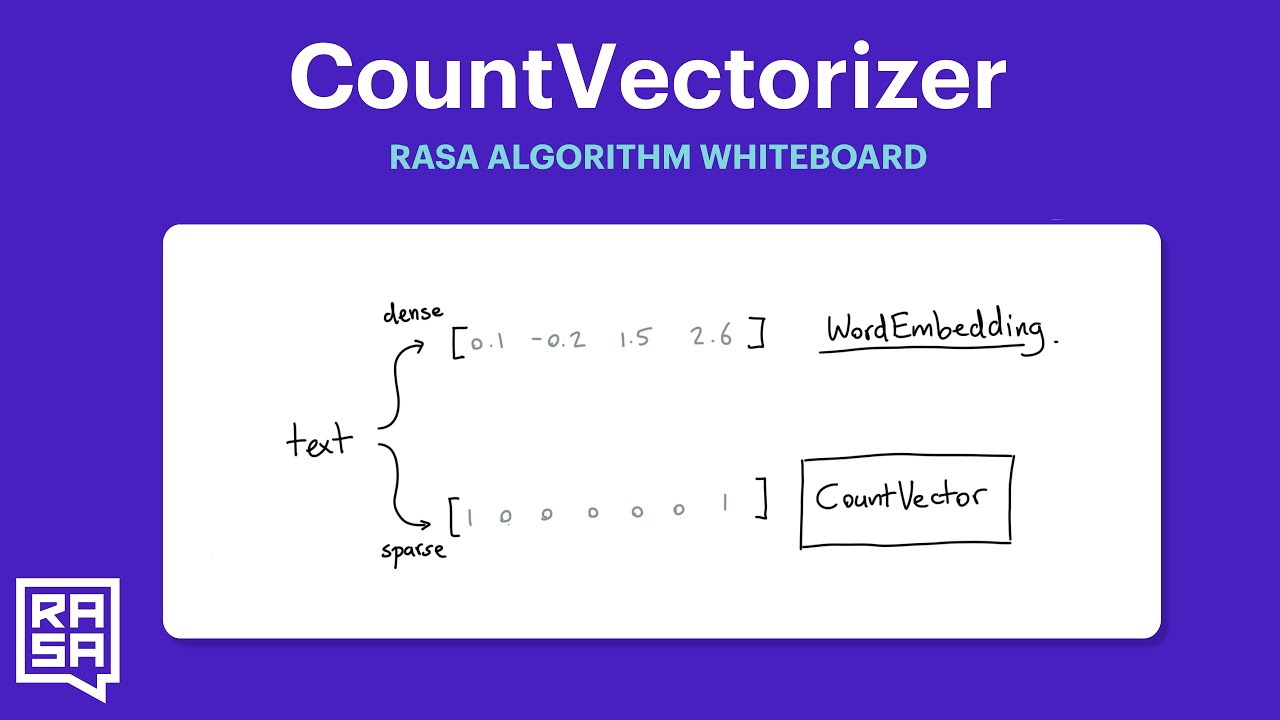 CountVectorizer
RASA ALGORITHM WHITEBOARD
dense
[0.1 -0.2 1.5 2.6] WordEmbedding.
text
[1 0 0 0 0 0 1] CountVector
sparse
RA
SA